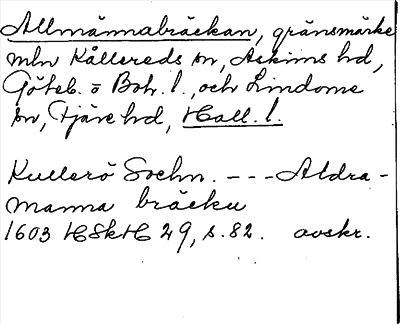 Allmännabräckan, gränsmärke
mln Kållereds sn, Askims hd,
Göteb. o Boh. l., och Lindome
sn, Fjäre hd, Hall. l.
Kullerö Sochn. --- Aldra-
manna bräcku
1603 HSkH 29, s. 82. avskr.